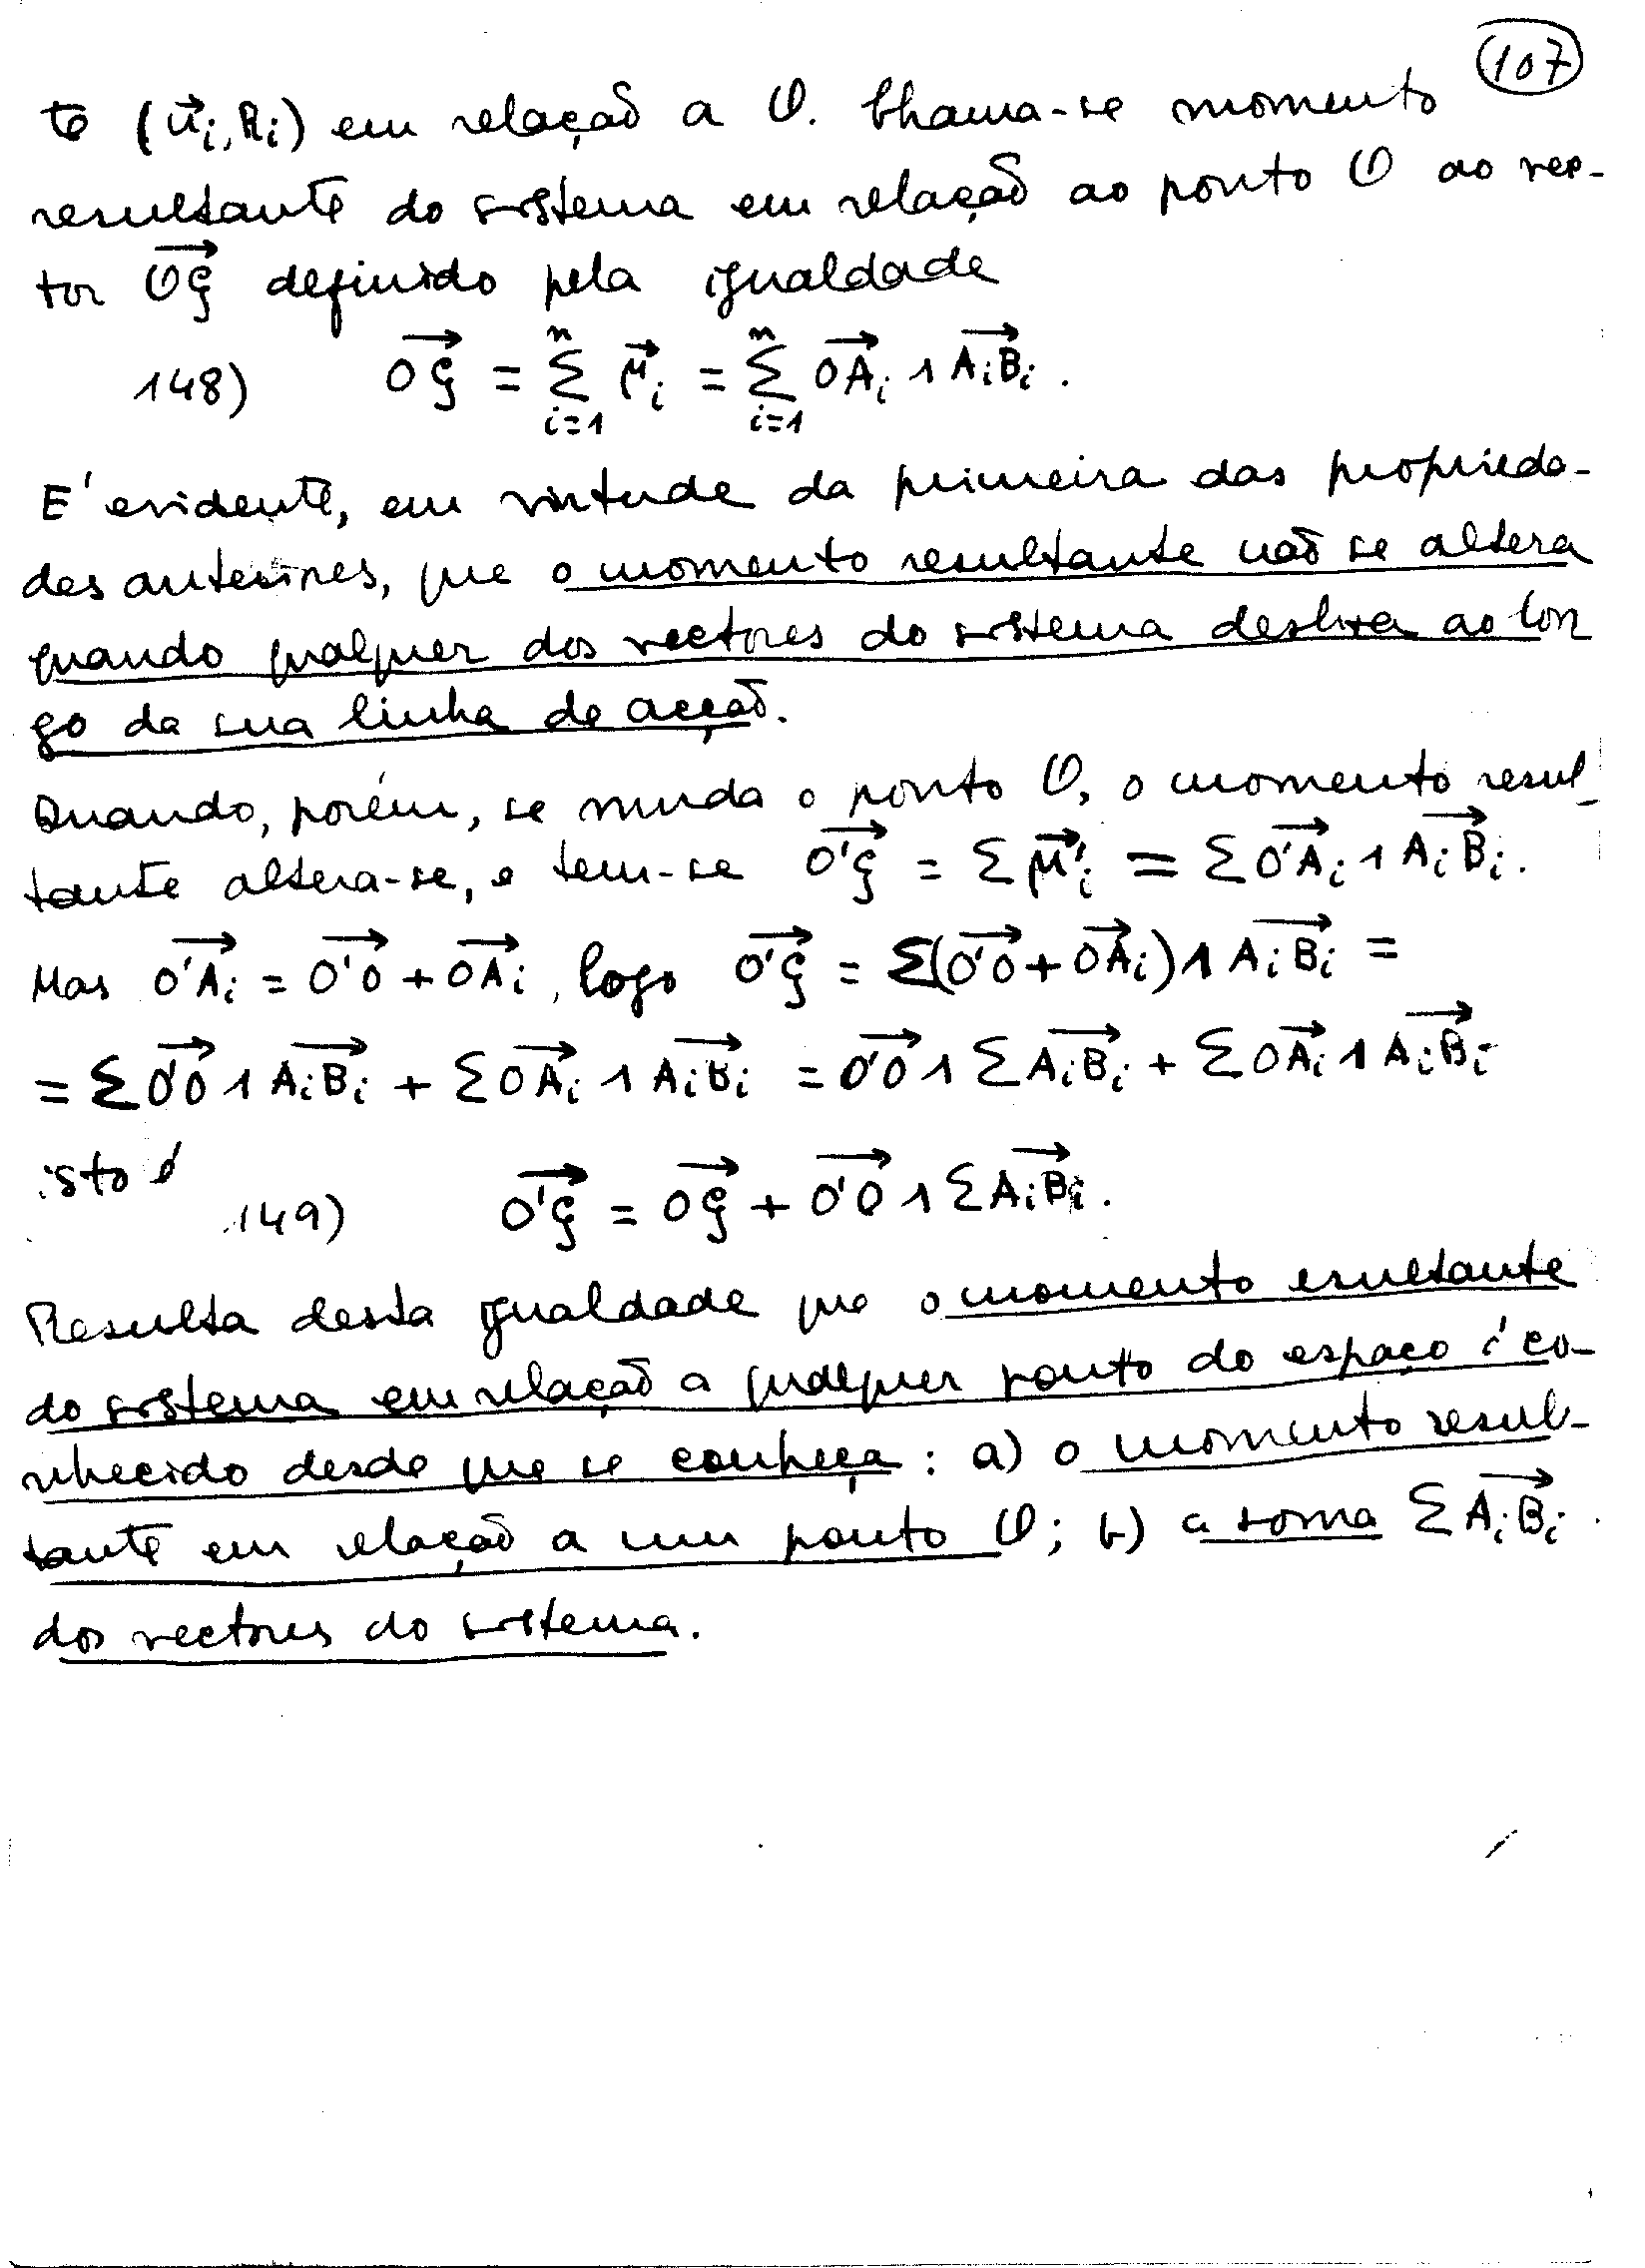 107
to (u⃗ᵢ, Aᵢ) em relação a O. Chama-se momento
resultante do sistema em relação ao ponto O ao vec-
tor OG⃗ definido pela igualdade
148) OG⃗ = Σⁿᵢ₌₁ μ⃗ᵢ = Σⁿᵢ₌₁ OA⃗ᵢ ∧ AᵢBᵢ⃗.
E' evidente, em virtude da primeira das proprieda-
des anteriores, que o momento resultante não se altera
quando qualquer dos vectores do sistema desliza ao lon
go da sua linha de acção.
Quando, porém, se muda o ponto O, o momento resul-
tante altera-se, e tem-se O'G⃗ = Σ μ⃗'ᵢ = Σ O'A⃗ᵢ ∧ AᵢBᵢ⃗.
Mas O'A⃗ᵢ = O'O⃗ + OA⃗ᵢ, logo O'G⃗ = Σ(O'O⃗ + OA⃗ᵢ) ∧ AᵢBᵢ⃗ =
= Σ O'O⃗ ∧ AᵢBᵢ⃗ + Σ OA⃗ᵢ ∧ AᵢBᵢ⃗ = O'O⃗ ∧ Σ AᵢBᵢ⃗ + Σ OA⃗ᵢ ∧ AᵢBᵢ⃗
isto é
149) O'G⃗ = OG⃗ + O'O⃗ ∧ Σ AᵢBᵢ⃗.
Resulta desta igualdade que o momento esultante
do sistema em relação a qualquer ponto do espaço é co-
nhecido desde que se conheça : a) o momento resul-
tante em relação a um ponto O; b) a soma Σ AᵢBᵢ⃗
dos vectores do sistema.